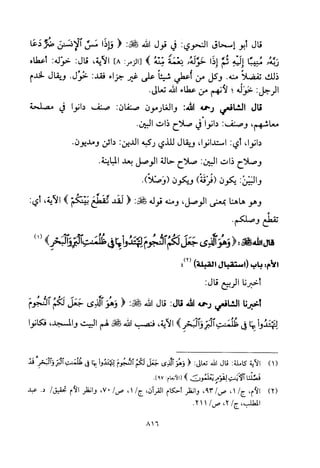 قال أبو إسحاق النحوي: في قول الله ﷻ: ﴿ وَإِذَا مَسَّ الْإِنسَٰنَ ضُرٌّ دَعَا
رَبَّهُۥ مُنِيبًا إِلَيْهِ ثُمَّ إِذَا خَوَّلَهُۥ نِعْمَةً مِّنْهُ ﴾ [الزمر: ٨] الآية، قال: خوّله: أعطاه
ذلك تفضلاً منه. وكل من أُعطي شيئاً على غير جزاء فقد: خُوِّل. ويقال لخدم
الرجل: خَوَلُه؛ لأنهم من عطاء الله تعالى.
قال الشافعي رحمه الله: والغارمون صنفان: صنف دانوا في مصلحة
معاشهم، وصنف: دانوا في صلاح ذات البين.
دانوا، أي: استدانوا، ويقال للذي ركبه الدين: دائن ومديون.
وصلاح ذات البين: صلاح حالة الوصل بعد المباينة.
والبَيْنُ: يكون (فُرْقَة) ويكون (وَصْلاً).
وهو هاهنا بمعنى الوصل، ومنه قوله ﷻ: ﴿ لَقَد تَّقَطَّعَ بَيْنَكُمْ ﴾ الآية، أي:
تقطع وصلكم.
قال الله ﷻ: ﴿ وَهُوَ الَّذِى جَعَلَ لَكُمُ النُّجُومَ لِتَهْتَدُوا بِهَا فِى ظُلُمَٰتِ الْبَرِّ وَالْبَحْرِ ﴾ (١)
الأم: باب (استقبال القبلة) (٢):
أخبرنا الربيع قال:
أخبرنا الشافعي رحمه الله قال: قال الله ﷻ: ﴿ وَهُوَ الَّذِى جَعَلَ لَكُمُ النُّجُومَ
لِتَهْتَدُوا بِهَا فِى ظُلُمَٰتِ الْبَرِّ وَالْبَحْرِ ﴾ الآية، فنصب الله ﷻ لهم البيت والمسجد، فكانوا
(١) الآية كاملة: قال الله تعالى: ﴿ وَهُوَ الَّذِى جَعَلَ لَكُمُ النُّجُومَ لِتَهْتَدُوا بِهَا فِى ظُلُمَٰتِ الْبَرِّ وَالْبَحْرِ قَدْ
فَصَّلْنَا الْآيَٰتِ لِقَوْمٍ يَعْلَمُونَ ﴾ [الأنعام: ٩٧].
(٢) الأم، ج/١، ص/٩٣، وانظر أحكام القرآن، ج/١، ص/٧٠، وانظر الأم تحقيق/ د. عبد
المطلب، ج/٢، ص/٢١١.
٨١٦